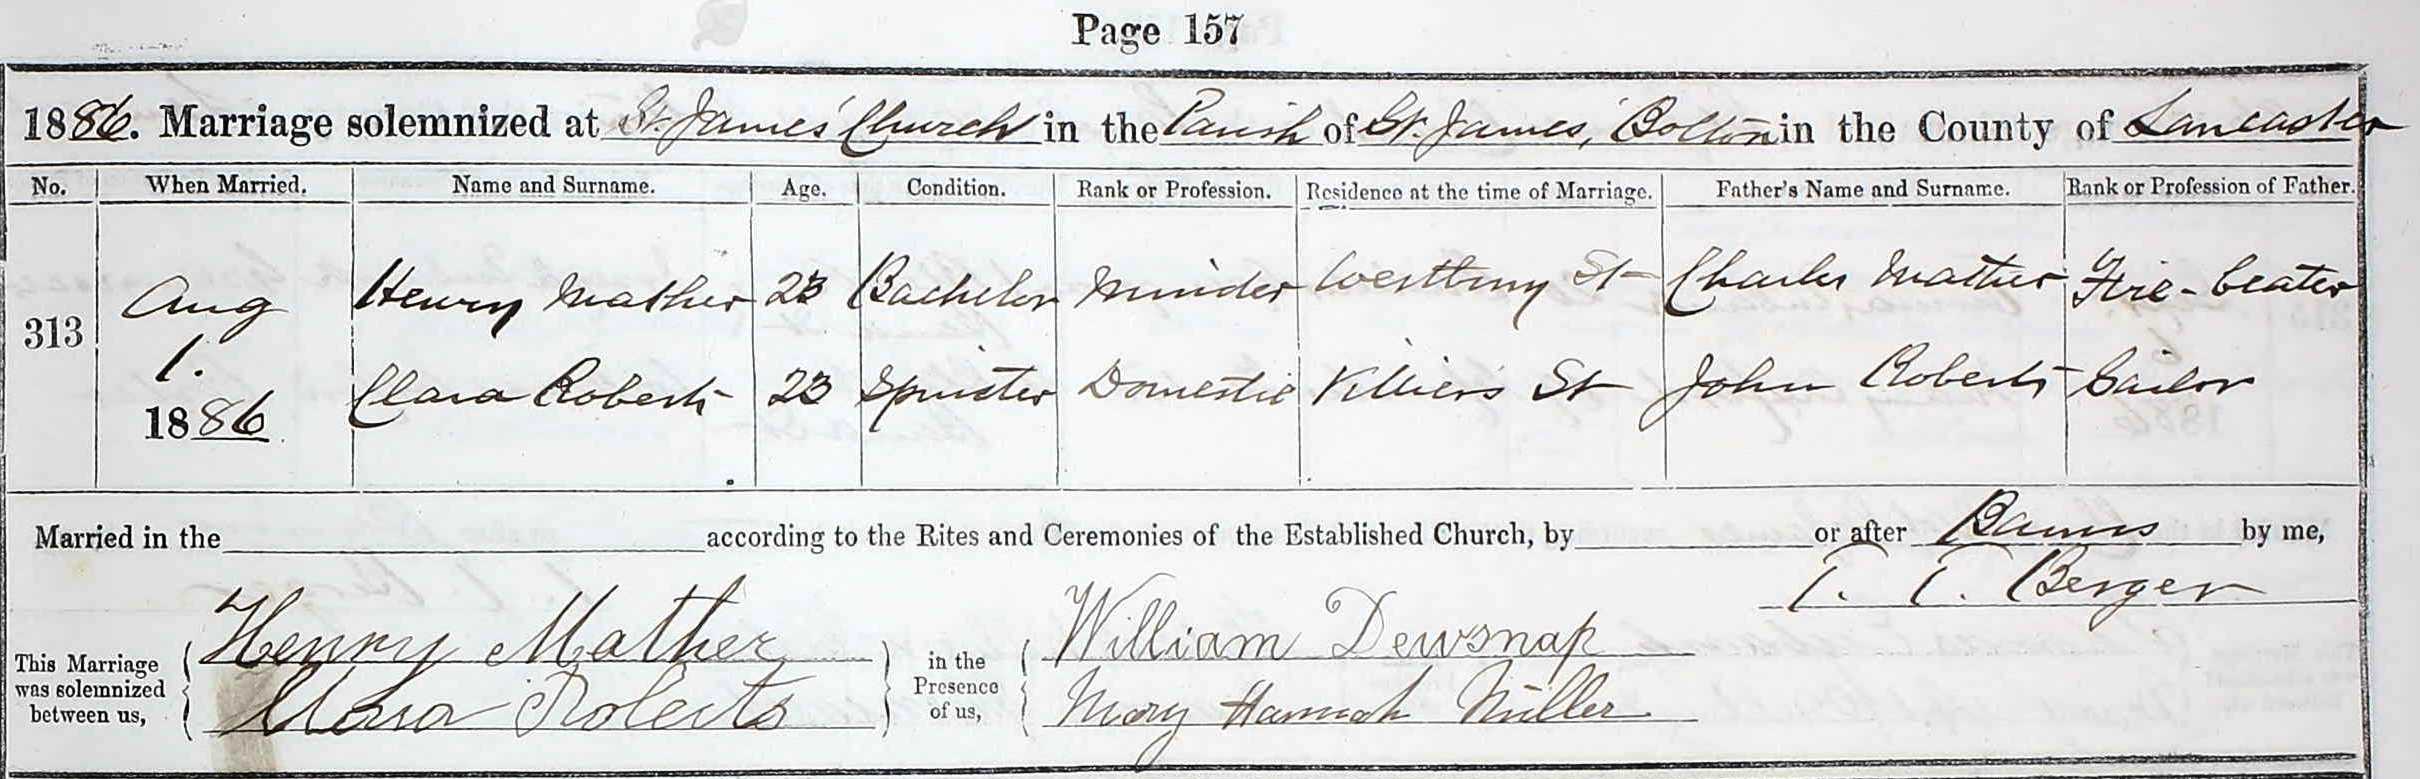 Page 157
1886. Marriage solemnized at St. James' Church in the Parish of St. James, Bolton in the County of Lancaster
No. When Married. Name and Surname. Age. Condition. Rank or Profession. Residence at the time of Marriage. Father's Name and Surname. Rank or Profession of Father.
313 Aug 1. 1886 Henry Mather 23 Bachelor Minder St Charles Mather Fire-beater
Clara Roberts 23 Spinster Domestic Villiers St John Roberts Sailor
Married in the according to the Rites and Ceremonies of the Established Church, by or after Banns by me,
T. T. Berger
This Marriage was solemnized between us, Henry Mather in the Presence of us, William Dewsnap
Clara Roberts Mary Hannah Miller